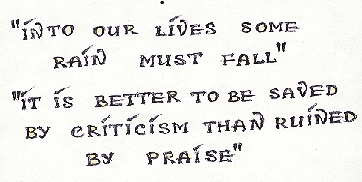 "INTO OUR LIVES SOME
RAIN MUST FALL"
"IT IS BETTER TO BE SAVED
BY CRITICISM THAN RUINED
BY PRAISE"